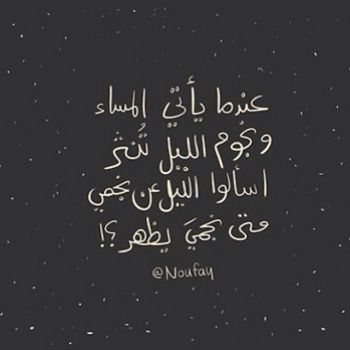 عندما يأتي المساء
ونجوم الليل تُنثر
اسألوا الليل عن نجمي
متى نجميَ يظهر؟!
@Noufay